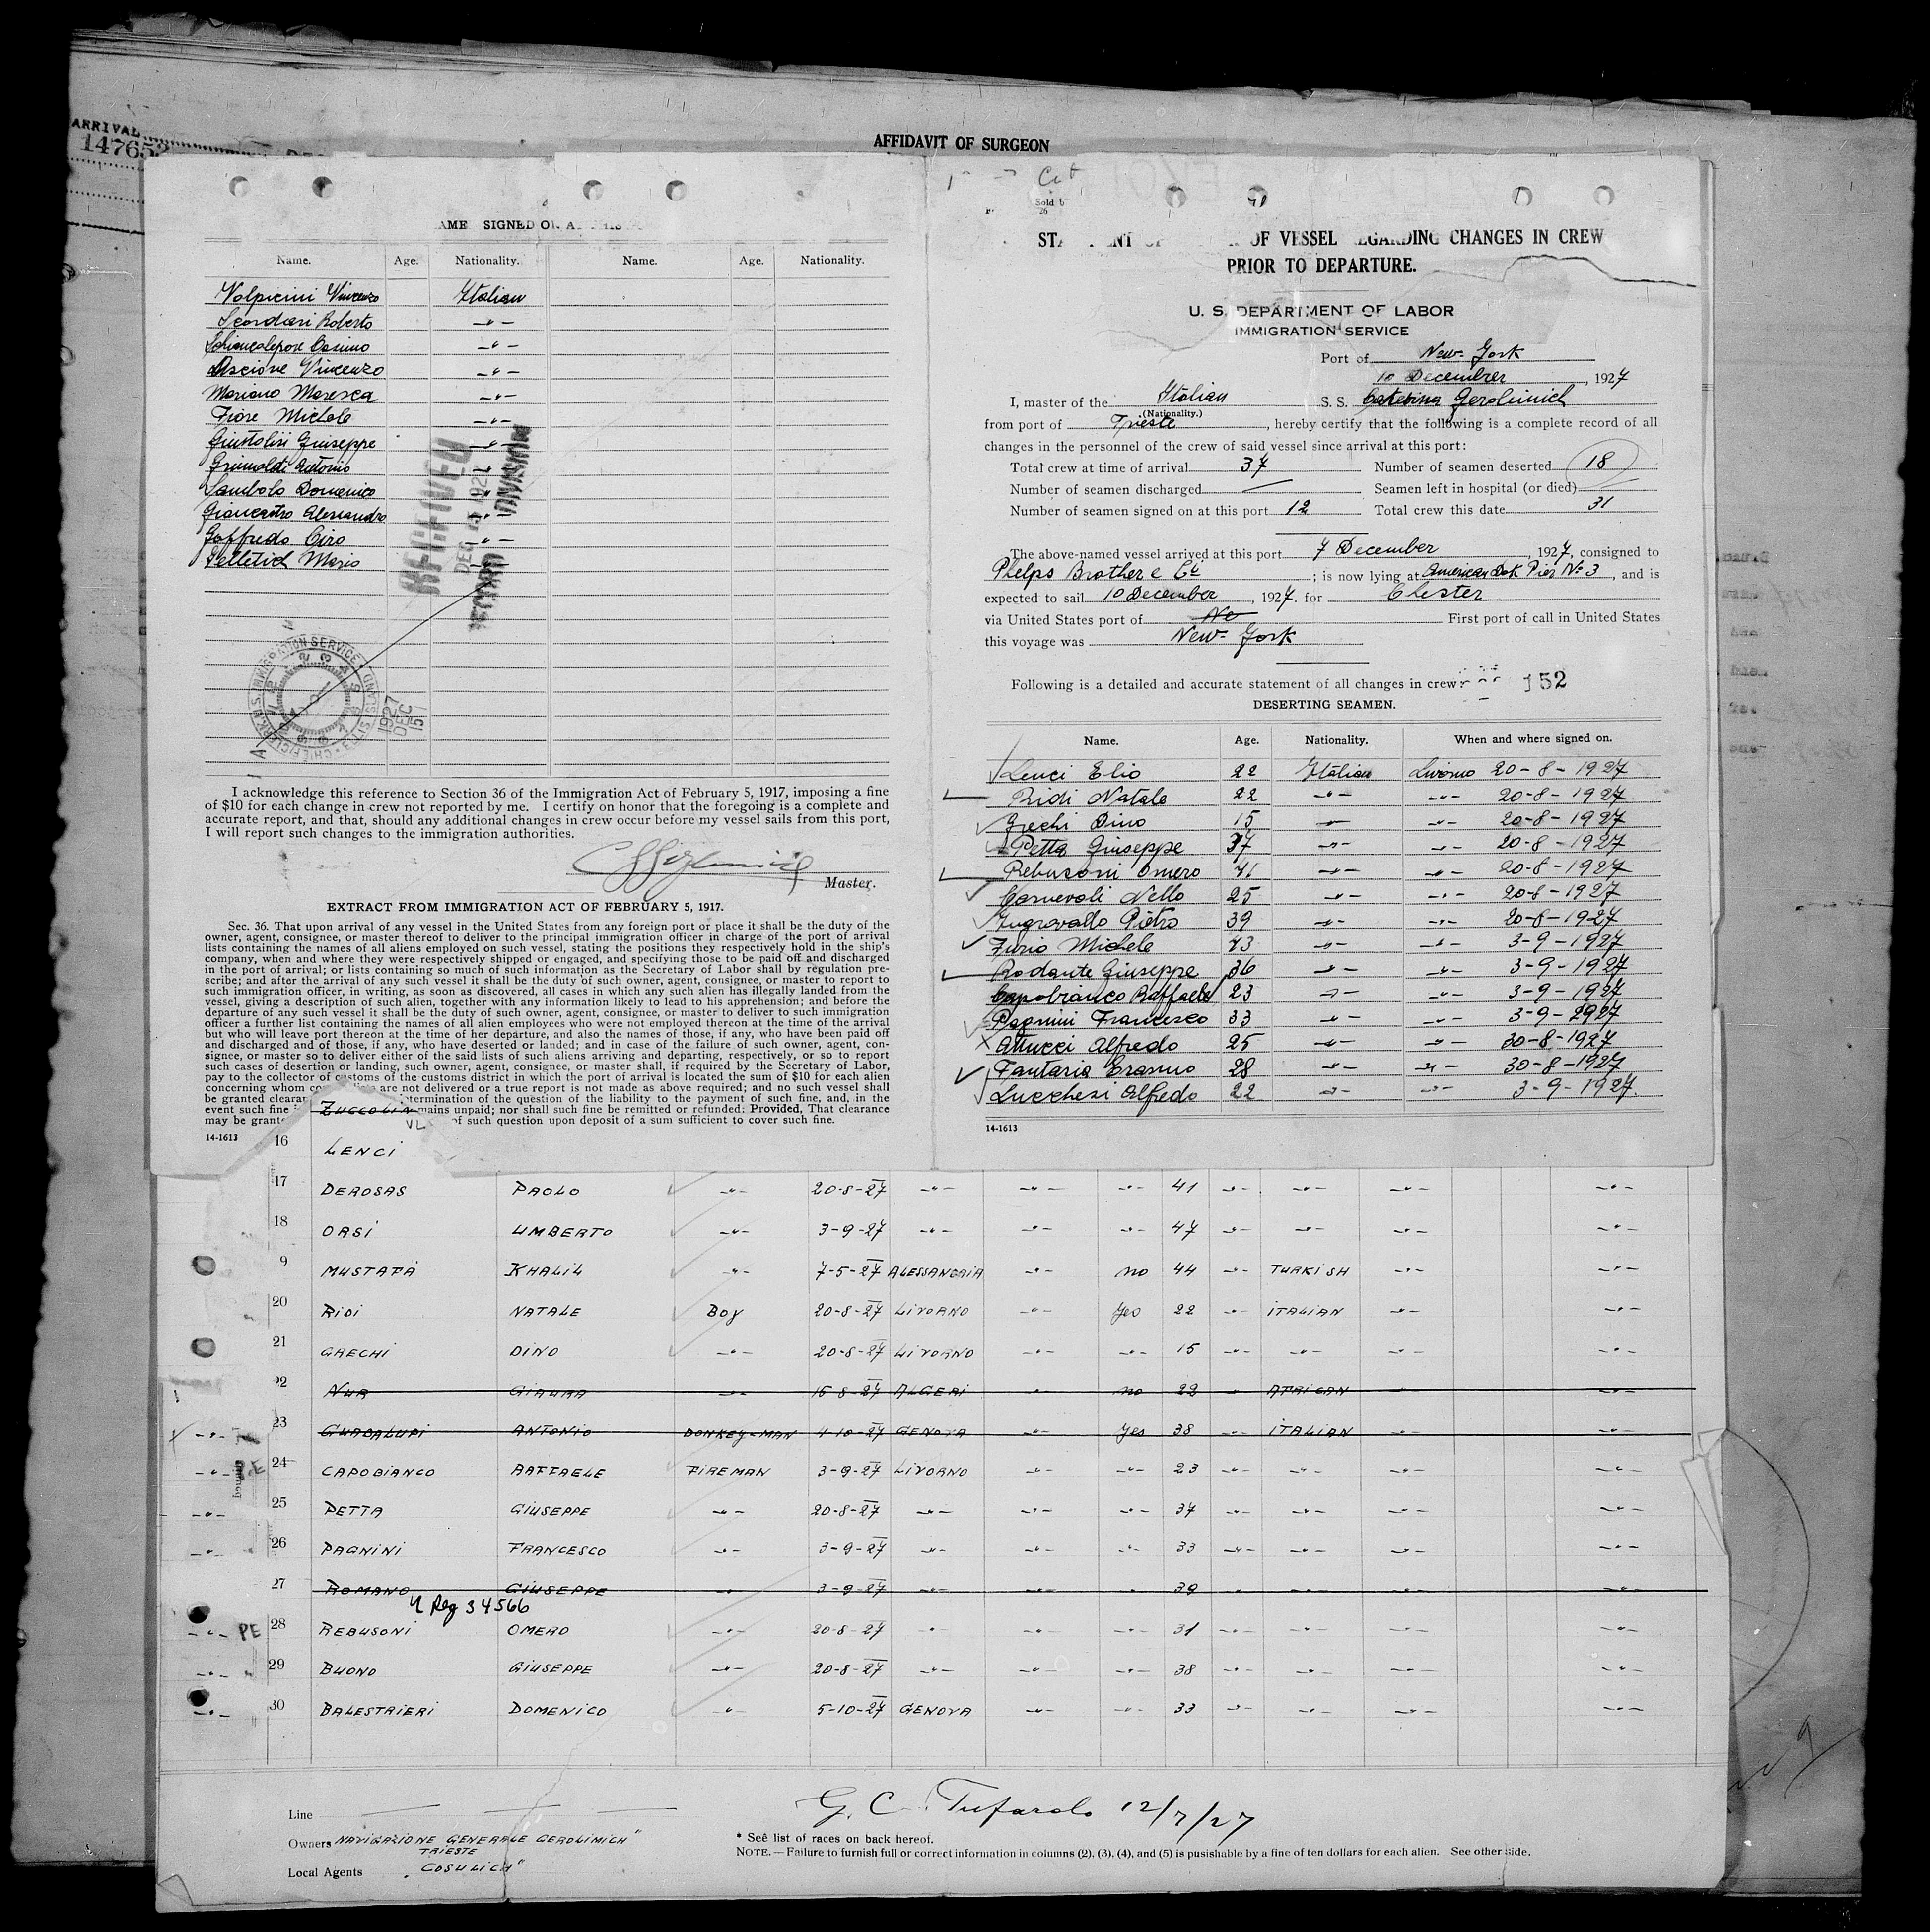 ARRIVAL
14765
AFFIDAVIT OF SURGEON
AME SIGNED
Name. Age. Nationality. Name. Age. Nationality.
Volpicini Vincenzo Italian
Scordari Roberto -"-
Cosimo -"-
Vincenzo -"-
Mariano Maresca -"-
Fiore Michele -"-
Giustolisi Giuseppe -"-
Grimaldi Antonio
Domenico "
Alessandro "
Goffredo Ciro -"-
Pelletich Mario
RECEIVED
DEC 15 1927
RECORD DIVISION
IMMIGRATION SERVICE
1927
DEC
15
I acknowledge this reference to Section 36 of the Immigration Act of February 5, 1917, imposing a fine
of $10 for each change in crew not reported by me. I certify on honor that the foregoing is a complete and
accurate report, and that, should any additional changes in crew occur before my vessel sails from this port,
I will report such changes to the immigration authorities.
Master.
EXTRACT FROM IMMIGRATION ACT OF FEBRUARY 5, 1917.
Sec. 36. That upon arrival of any vessel in the United States from any foreign port or place it shall be the duty of the
owner, agent, consignee, or master thereof to deliver to the principal immigration officer in charge of the port of arrival
lists containing the names of all aliens employed on such vessel, stating the positions they respectively hold in the ship's
company, when and where they were respectively shipped or engaged, and specifying those to be paid off and discharged
in the port of arrival; or lists containing so much of such information as the Secretary of Labor shall by regulation pre-
scribe; and after the arrival of any such vessel it shall be the duty of such owner, agent, consignee, or master to report to
such immigration officer, in writing, as soon as discovered, all cases in which any such alien has illegally landed from the
vessel, giving a description of such alien, together with any information likely to lead to his apprehension; and before the
departure of any such vessel it shall be the duty of such owner, agent, consignee, or master to deliver to such immigration
officer a further list containing the names of all alien employees who were not employed thereon at the time of the arrival
but who will leave port thereon at the time of her departure, and also the names of those, if any, who have been paid off
and discharged and of those, if any, who have deserted or landed; and in case of the failure of such owner, agent, con-
signee, or master so to deliver either of the said lists of such aliens arriving and departing, respectively, or so to report
such cases of desertion or landing, such owner, agent, consignee, or master shall, if required by the Secretary of Labor,
pay to the collector of customs of the customs district in which the port of arrival is located the sum of $10 for each alien
concerning whom co are not delivered or a true report is not made as above required; and no such vessel shall
be granted clearan termination of the question of the liability to the payment of such fine, and, in the
event such fine mains unpaid; nor shall such fine be remitted or refunded: Provided, That clearance
may be grant of such question upon deposit of a sum sufficient to cover such fine.
14-1613
Sold b
26
STA NT OF VESSEL EGARDING CHANGES IN CREW
PRIOR TO DEPARTURE.
U. S. DEPARTMENT OF LABOR
IMMIGRATION SERVICE
Port of New-York
10 December, 1927
I, master of the Italian S. S. Caterina Gerolimich
(Nationality.)
from port of Trieste, hereby certify that the following is a complete record of all
changes in the personnel of the crew of said vessel since arrival at this port:
Total crew at time of arrival 37 Number of seamen deserted 18
Number of seamen discharged — Seamen left in hospital (or died) —
Number of seamen signed on at this port 12 Total crew this date 31
The above-named vessel arrived at this port 7 December, 1927, consigned to
Phelps Brother e Co; is now lying at American Dok Pier No 3, and is
expected to sail 10 December, 1927. for Chester
via United States port of No First port of call in United States
this voyage was New-York
Following is a detailed and accurate statement of all changes in crew: 152
DESERTING SEAMEN.
Name. Age. Nationality. When and where signed on.
Lenci Elio 22 Italian Livorno 20-8-1927
Ridi Natale 22 -"- -"- 20-8-1927
Grechi Dino 15 -"- -"- 20-8-1927
Petta Giuseppe 37 -"- -"- 20-8-1927
Rebusoni Omero 41 -"- -"- 20-8-1927
Carnevali Nello 25 -"- -"- 20-8-1927
Ingravallo Pietro 39 -"- -"- 20-8-1927
Furio Michele 43 -"- -"- 3-9-1927
Rodante Giuseppe 36 -"- -"- 3-9-1927
Capobianco Raffaele 23 -"- -"- 3-9-1927
Pagnini Francesco 33 -"- -"- 3-9-2927
Attucci Alfredo 25 -"- -"- 30-8-1927
Fantaria Erasmo 28 -"- -"- 30-8-1927
Lucchesi Alfredo 22 -"- -"- 3-9-1927.
14-1613
ZUCCOLIN
VL
16 LENCI
17 DEROSAS PAOLO -"- 20-8-27 -"- -"- -"- 41 -"- -"- -"- -"-
18 ORSI UMBERTO -"- 3-9-27 -"- -"- -"- 47 -"- -"- -"- -"-
9 MUSTAFÀ KHALIL -"- 7-5-27 ALESSANDRIA -"- no 44 -"- TURKISH -"- -"-
20 RIDI NATALE BOY 20-8-27 LIVORNO -"- Yes 22 -"- ITALIAN -"- -"-
21 GRECHI DINO -"- 20-8-27 LIVORNO -"- -"- 15 -"- -"- -"- -"-
22 NUR GIAURA -"- 16-8-27 ALGERI -"- no 22 -"- AFRICAN -"- -"-
23 GUADALUPI ANTONIO DONKEY-MAN 4-10-27 GENOVA -"- Yes 38 -"- ITALIAN -"- -"-
24 CAPOBIANCO RAFFAELE FIREMAN 3-9-27 LIVORNO -"- -"- 23 -"- -"- -"- -"-
25 PETTA GIUSEPPE -"- 20-8-27 -"- -"- -"- 37 -"- -"- -"- -"-
26 PAGNINI FRANCESCO -"- 3-9-27 -"- -"- -"- 33 -"- -"- -"- -"-
27 ROMANO GIUSEPPE -"- 3-9-27 -"- -"- -"- 39 -"- -"- -"- -"-
Reg 34566
PE 28 REBUSONI OMERO -"- 20-8-27 -"- -"- -"- 31 -"- -"- -"- -"-
29 BUONO GIUSEPPE -"- 20-8-27 -"- -"- -"- 38 -"- -"- -"- -"-
30 BALESTRIERI DOMENICO -"- 5-10-27 GENOVA -"- -"- 33 -"- -"- -"- -"-
G. C. Tufarolo 12/7/27
Line
Owners NAVIGAZIONE GENERALE GEROLIMICH"
TRIESTE
Local Agents "COSULICH"
* See list of races on back hereof.
NOTE.—Failure to furnish full or correct information in columns (2), (3), (4), and (5) is punishable by a fine of ten dollars for each alien. See other side.